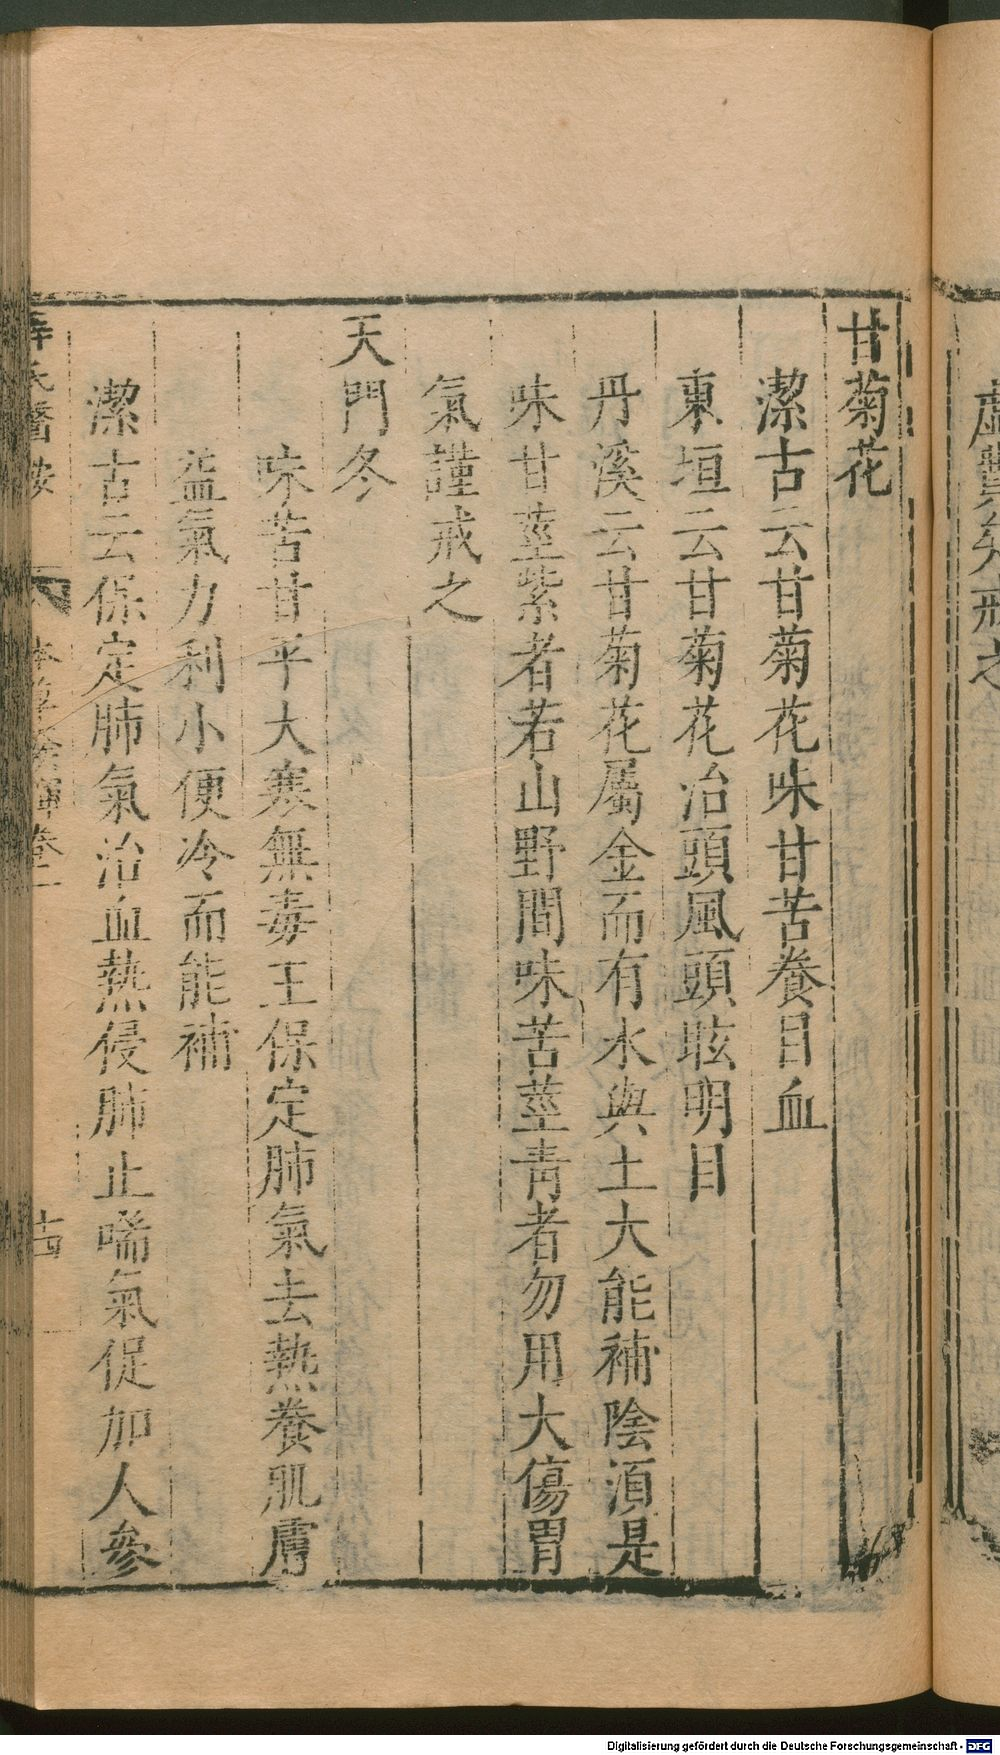 虛賢矣戒之
甘菊花
潔古云甘菊花味甘苦養目血
東垣云甘菊花治頭風頭眩明目
丹溪云甘菊花屬金而有水與土大能補陰湏是
味甘莖紫者若山野間味苦莖青者勿用大傷胃
氣謹戒之
天門冬
味苦甘平大寒無毒王保定肺氣去熱養肌膚
益氣力利小便冷而能補
潔古云保定肺氣治血熱侵肺止喘氣促加人參
薛氏醫按 本草發揮卷二 十四
Digitalisierung gefördert durch die Deutsche Forschungsgemeinschaft - DFG